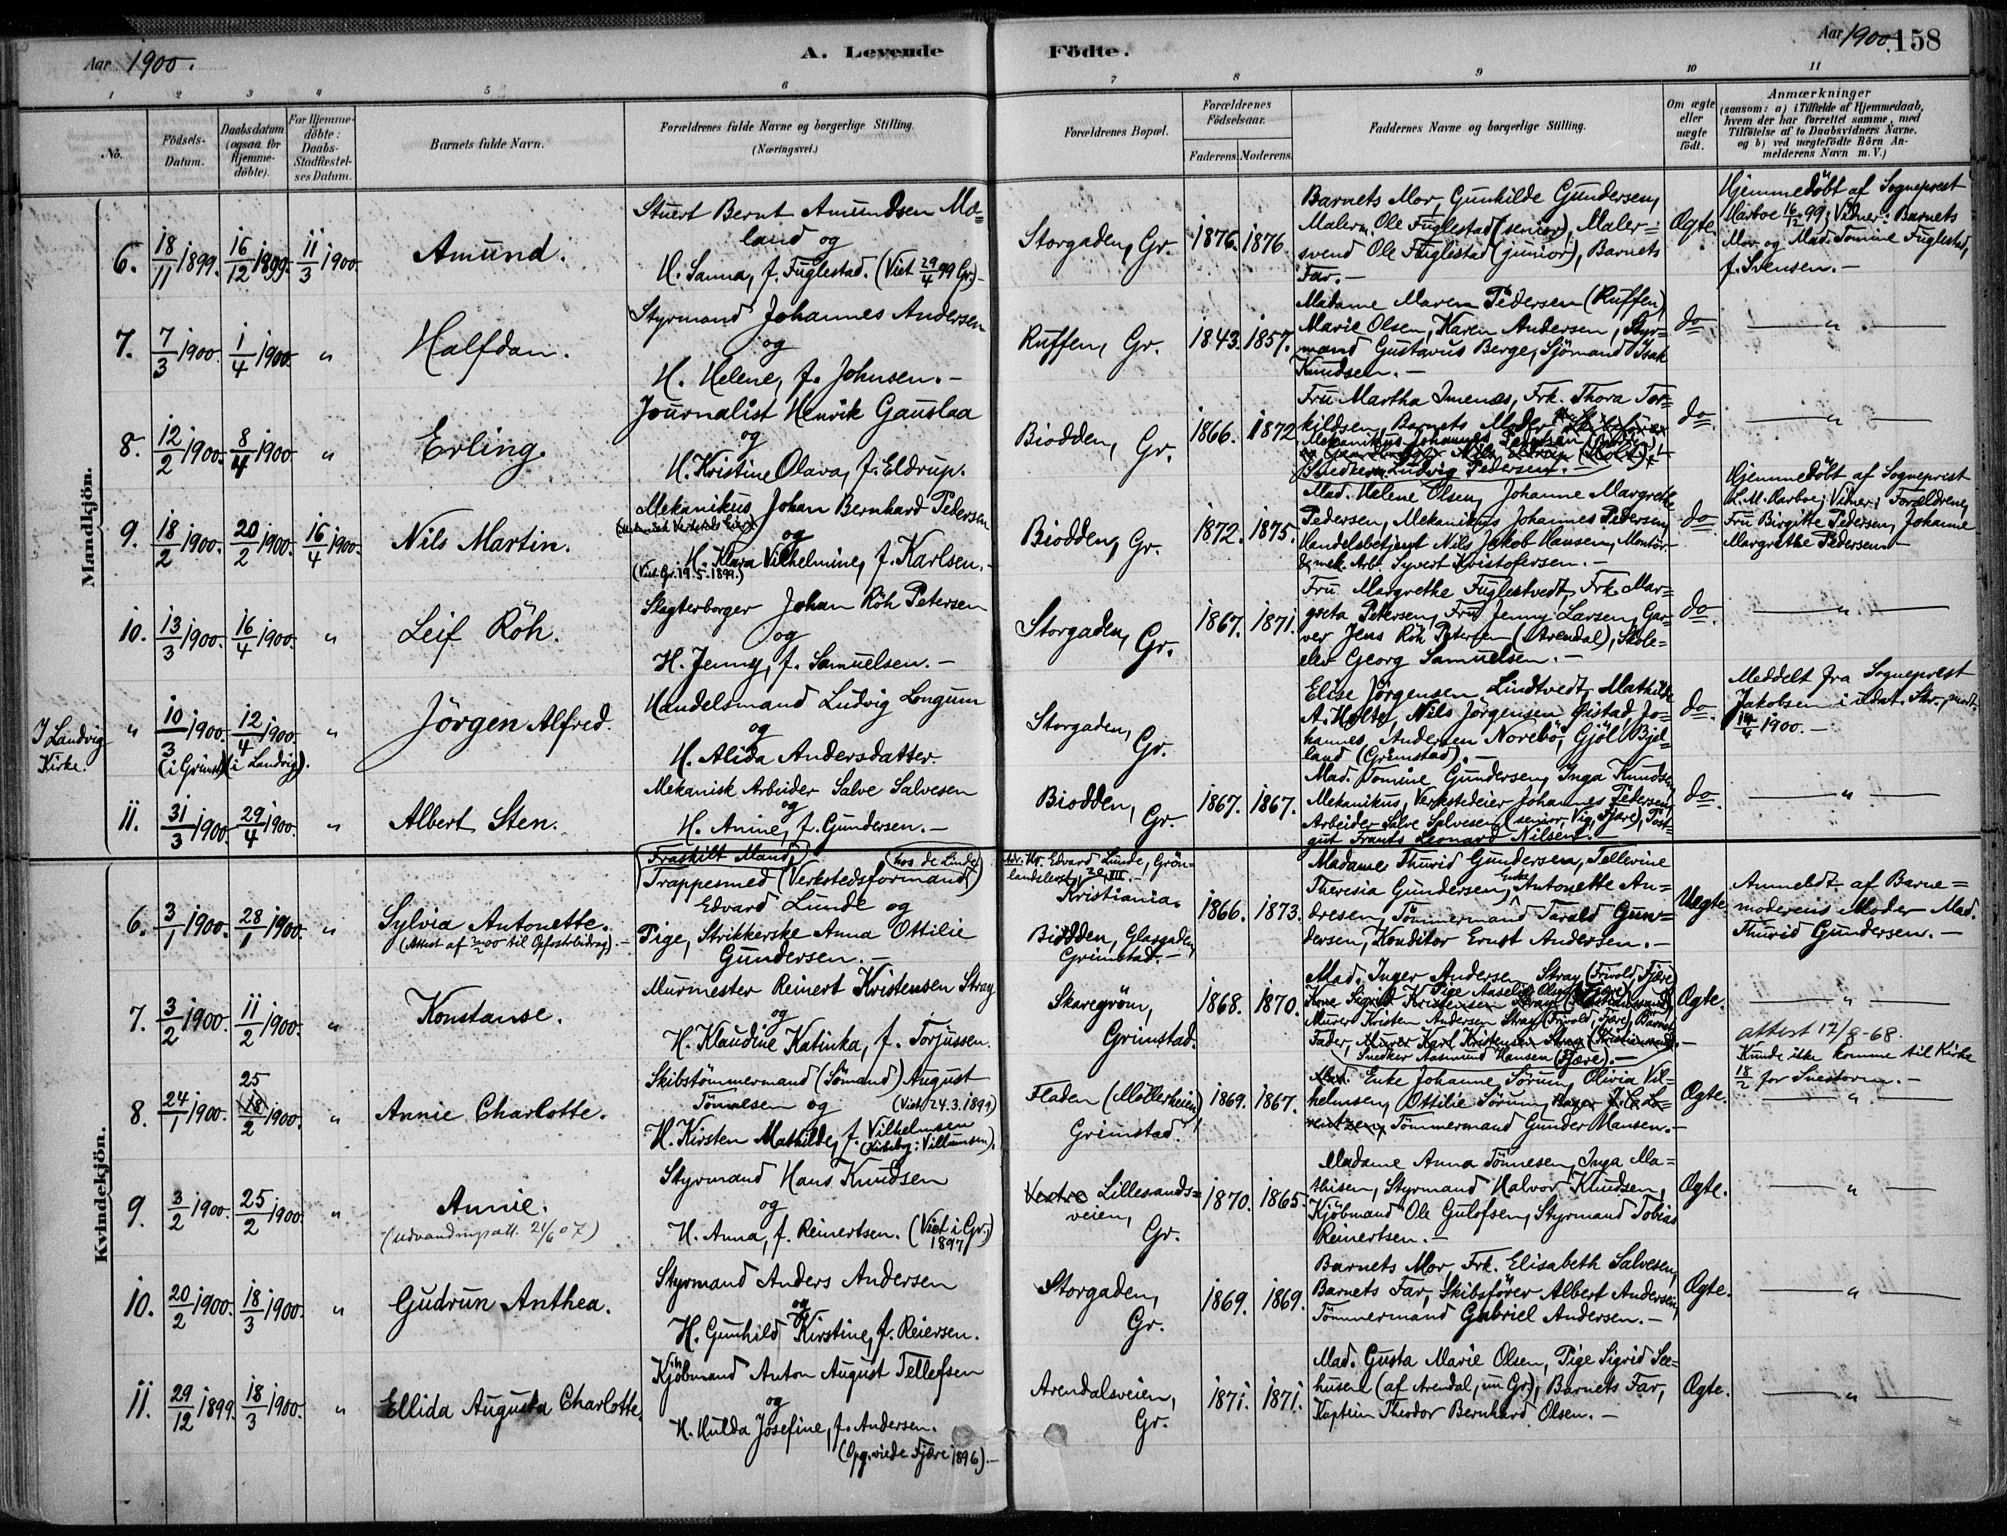 Aar 1900.
A. Levende Födte.
Aar 1900. 158
1 2 3 4 5 6 7 8 9 10 11
No.
Födsels-Datum.
Daabsdatum (ogsaa for Hjemmedöbte).
For Hjemmedöbte: Daabs-Stadfæstelses Datum.
Barnets fulde Navn.
Forældrenes fulde Navne og borgerlige Stilling. (Næringsvei.)
Forældrenes Bopæl.
Forældrenes Födselsaar.
Faderens. Moderens.
Faddernes Navne og borgerlige Stilling.
Om ægte eller uægte födt.
Anmærkninger
(saasom: a) i Tilfælde af Hjemmedaab, hvem der har forrettet samme, med Tilföielse af to Daabsvidners Navne, og b) ved uægtefödte Börn Anmelderens Navn m. V.)
Mandkjön.
6. 18/11 1899. 16/12 1899. 11/3 1900
Amund.
Stuert Bernt Amundsen Mæ=
land og
H. Sanna, f. Fuglestad. (Viet 29/4 99 Gr.)-
Storgaden, Gr. 1876. 1876.
Barnets Mor, Gunhilde Gundersen,
Maler Ole Fuglestad (senior), Maler=
svend Ole Fuglestad (junior), Barnets
Far. -
Ægte.
Hjemmedöbt af Sogneprest
Aarboe 16/12 99; Vidner: Barnets
Mor og Mad. Tomine Fuglestad,
f. Svensen. -
7. 7/3 1900. 1/4 1900. "
Halfdan.
Styrmand Johannes Andersen
og
H. Helene, f. Johnsen. -
Ruffen, Gr. 1843. 1857.
Madame Maren Pedersen (Ruffen)
Marie Olsen, Karen Andersen, Styr=
mand Gustavus Berge, Sjömand Isak
Knudsen. -
do
— " —
8. 12/2 1900. 8/4 1900. "
Erling.
Journalist Henrik Gauslaa
og
H. Kristine Olava, f. Eldrup.
Biodden, Gr. 1866. 1872
Fru Martha Imenæs, Frk. Thora Tor=
kildsen, Barnets Moder,
Mekanikus Johannes Pedersen
Snedker Ludvig Pedersen. -
do
— " —
9. 18/2 1900. 20/2 1900. 16/4 1900.
Nils Martin.
Mekanikus Johan Bernhard Pedersen
og
H. Klara Vilhelmine, f. Karlsen. -
(Viet Gr. 19.5.1899.)
Biodden, Gr. 1872. 1875.
Mad. Helene Olsen, Johanne Margrethe
Pedersen, Mekanikus Johannes Pedersen,
Handelsbetjent Nils Jakob Hansen, Montör
& mek. Arb. Syvert Kristofersen. -
do
Hjemmedöbt af Sogneprest
L. M. Aarboe; Vidner: Forældrene,
Fru Birgitte Pedersen, Johanne
Margrethe Pedersen -
10. 13/3 1900. 16/4 1900. "
Leif Röh.
Slagterborger Johan Röh Petersen
og
H. Jenny, f. Samuelsen. -
Storgaden, Gr. 1867. 1871.
Fru Margrethe Fuglestvedt, Frk. Mar=
greta Petersen, Fru Jenny Larsen, Gar=
ver Jens Röh Petersen (Arendal), Skole=
elev Georg Samuelsen. -
do
— " —
I Landvig Kirke.
" 10/3 1900. 12/4 1900. "
(i Grimst.) (i Landvig).
Jörgen Alfred.
Handelsmand Ludvig Longum
og
H. Alida Andersdatter.
Storgaden, Gr.
Elise Jörgensen Lindtvedt, Mathilde
A. Holte, Nils Jörgensen Øistad, Jo=
hannes Andersen Norebö, Gjöl Bjel=
land (Grimstad). -
do.
Meddelt fra Sogneprest
Jakobsen
14/4 1900. -
11. 31/3 1900. 29/4 1900. "
Albert Sten.
Mekanisk Arbeider Salve Salvesen
og
H. Anine, f. Gundersen. -
Biodden, Gr. 1867. 1867.
Mad. Tomine Gundersen, Inga Knudsen,
Mekanikus, Verkstedeier Johannes Pedersen,
Arbeider Salve Salvesen (senior, Vig, Fjære), Post=
gut Frants Leonard Nilsen. -
do
— " —
Kvindekjön.
6. 3/1 1900. 28/1 1900. "
Sylvia Antonette.
Fraskilt Mand, (hos de Linde)
Trappesmed (Verkstedsformand)
Edvard Lunde og
Pige, Strikkerske Anna Ottilie
Gundersen. -
Adr. Hr. Edvard Lunde, Grön=
landsleret, 20, III. -
Kristiania.
Biodden, Glasgaden,
Grimstad. -
1866. 1873.
Madame Thurid Gundersen, Tellevine
Theresia Gundersen, Enke Antonette An=
dresen, Tömmermand Tarald Gun=
dersen, Konditor Ernst Andersen. -
Uægte
Anmeldt af Barne=
moderens Moder Mad.
Thurid Gundersen. -
7. 3/2 1900. 11/2 1900. "
Konstanse.
Murmester Reinert Kristensen Stray
og
H. Klaudine Katinka, f. Torjussen.
Skaregröm,
Grimstad.
1868. 1870.
Mad. Inger Andersen Stray (Frivold, Fjære)
Kone Sigrid Kristensen Stray (Kristiansand),
Murer Kristen Andersen Stray (Frivold, Fjære), Barnets
Fader, Murer Karl Kristensen Stray (Kristiansand).
Snedker Aasmund Hansen (Fjære). -
Ægte.
— " —
attest 12/8-68.
8. 24/1 1900. 25 18/2 1900. "
Annie Charlotte.
Skibstömmermand (Sömand) August
Tönnesen og (Viet 24.3.1899)
H. Kirsten Mathilde, f. Vilhelmsen
(Kirkebog: Villumsen).
Fladen (Möllerheien),
Grimstad.
1869. 1867.
Mad. Enke Johanne Sörum, Olivia Vil=
helmsen, Ottilie Sörum,
Tömmermand Gunder Hansen. -
Ægte.
Kunde ikke komme til Kirke
18/2 for Snestorm. -
— " —
9. 3/2 1900. 25/2 1900. "
Annie.
(udvandringsatt. 21/6 07)
Styrmand Hans Knudsen
og
H. Anna, f. Reinertsen. (Viet i Gr. 1897)
Vestre Lillesands=
veien,
Gr.
1870. 1865.
Madame Anna Tönnesen, Inga Ma=
thisen, Styrmand Halvor Knudsen,
Kjöbmand Ole Gulofsen, Styrmand Tobias
Reinertsen. -
Ægte.
— " —
10. 20/2 1900. 18/3 1900. "
Gudrun Anthea.
Styrmand Anders Andersen
og
H. Gunhild Kirstine, f. Reiersen.
Storgaden,
Gr.
1869. 1869.
Barnets Mor, Frk. Elisabeth Salvesen,
Barnets Far, Skibsförer Albert Andersen,
Tömmermand Gabriel Andersen. -
Ægte.
— " —
11. 29/12 1899. 18/3 1900. "
Ellida Augusta Charlotte.
Kjöbmand Anton August Tellefsen
og
H. Hulda Josefine, f. Andersen.
(Opg. viede Fjære 1896). -
Arendalsveien,
Gr.
1871. 1871.
Mad. Gusta Marie Olsen, Pige Sigrid See=
husen (af Arendal, nu Gr), Barnets Far,
Kaptein Theodor Bernhard Olsen. -
Ægte.
— " —